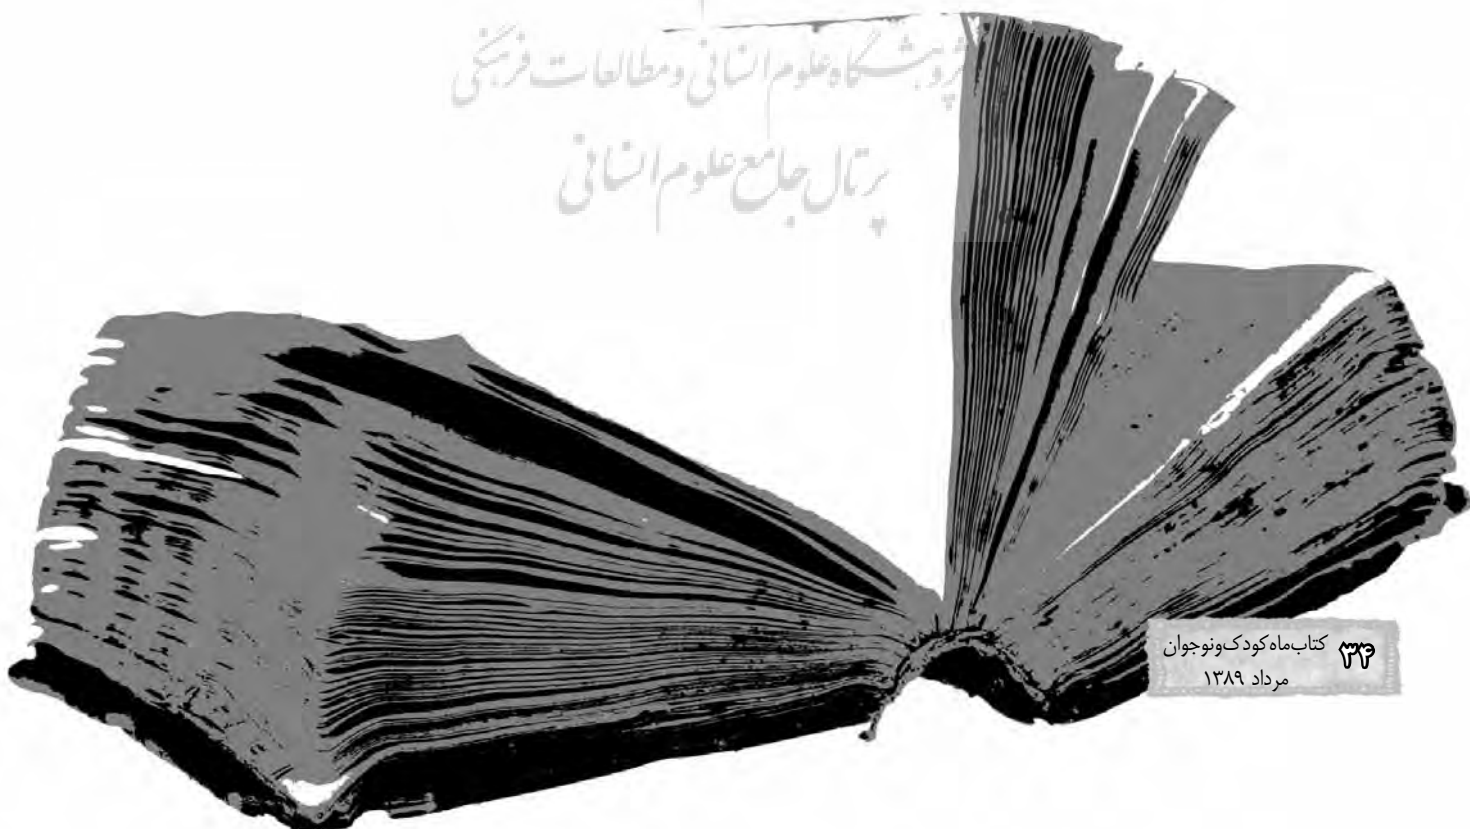 پژوهشگاه علوم انسانی و مطالعات فرهنگی
پرتال جامع علوم انسانی
۳۴ کتاب‌ماه کودک‌ونوجوان
مرداد ۱۳۸۹